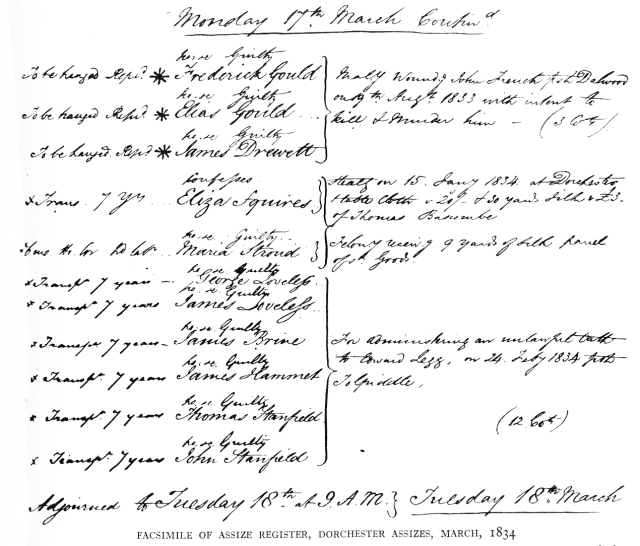 Monday 17th March Contind
po. se Guilty
To be hanged Repd. * Frederick Gould
Maly Woundg John French psh Dalwood
po. se Guilty
on 9th Augt 1833 with intent to
To be hanged Repd. * Elias Gould
kill & Murder him - (3 Cots)
po. se Guilty
To be hanged. Repd * James Drewett
Confesses
Stealg on 15. Jany 1834. at Dorchester
x Trans. 7 Yrs Eliza Squires
table Cloth & 30 yards Silk & £3.
of Thomas Bascombe
po. se Guilty
Felony receivg 9 yards of Silk parcel
Hd lab. Maria Stroud
of sd Goods
po. se Guilty
x Transpt 7 years - George Loveless
po. se Guilty
x Transpt 7 years James Loveless
po. se Guilty
x Transpt 7 years - James Brine
For administering an unlawful oath
po. se Guilty
to Edward Legg, on 24. Feby 1834 psh
x Transpt. 7 years James Hammet
Tolpiddle,
po. se Guilty
x Transpt. 7 years Thomas Stanfield
(12 Cots)
po. se Guilty
x Transpt. 7 years John Stanfield
Adjourned to Tuesday 18th at 9 A.M. } Tuesday 18th March
FACSIMILE OF ASSIZE REGISTER, DORCHESTER ASSIZES, MARCH, 1834